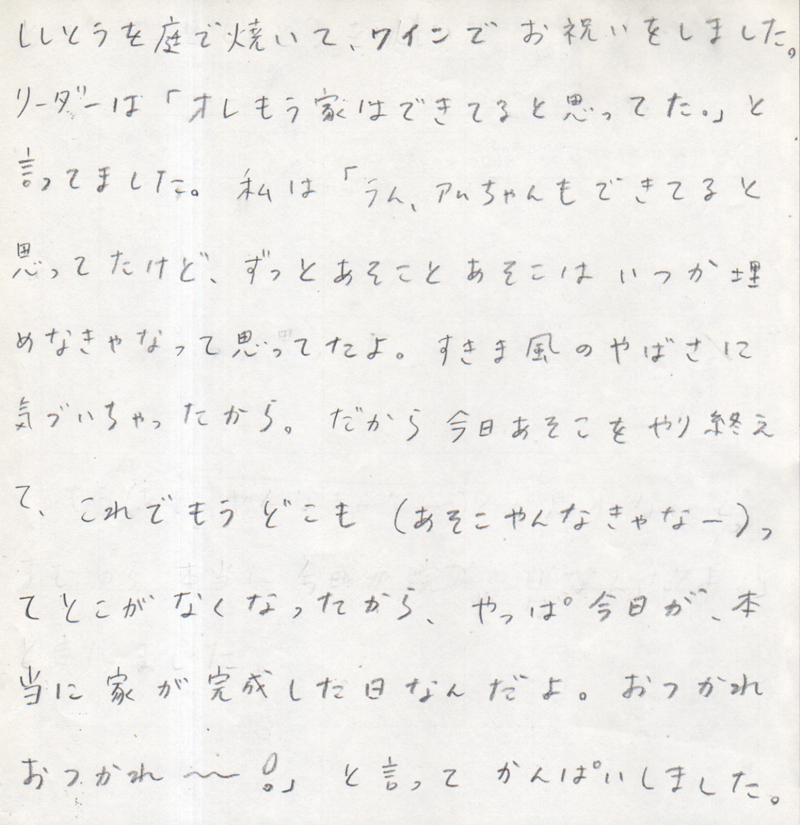 ししとうを庭で焼いて、ワインでお祝いをしました。
リーダーは「オレもう家はできてると思ってた。」と
言ってました。私は「うん、アムちゃんもできてると
思ってたけど、ずっとあそことあそこはいつか埋
めなきゃなって思ってたよ。すきま風のやばさに
気づいちゃったから。だから今日あそこをやり終え
て、これでもうどこも(あそこやんなきゃなー)っ
てとこがなくなったから、やっぱ今日が、本
当に家が完成した日なんだよ。おつかれ
おつかれ〜〜!」と言ってかんぱいしました。